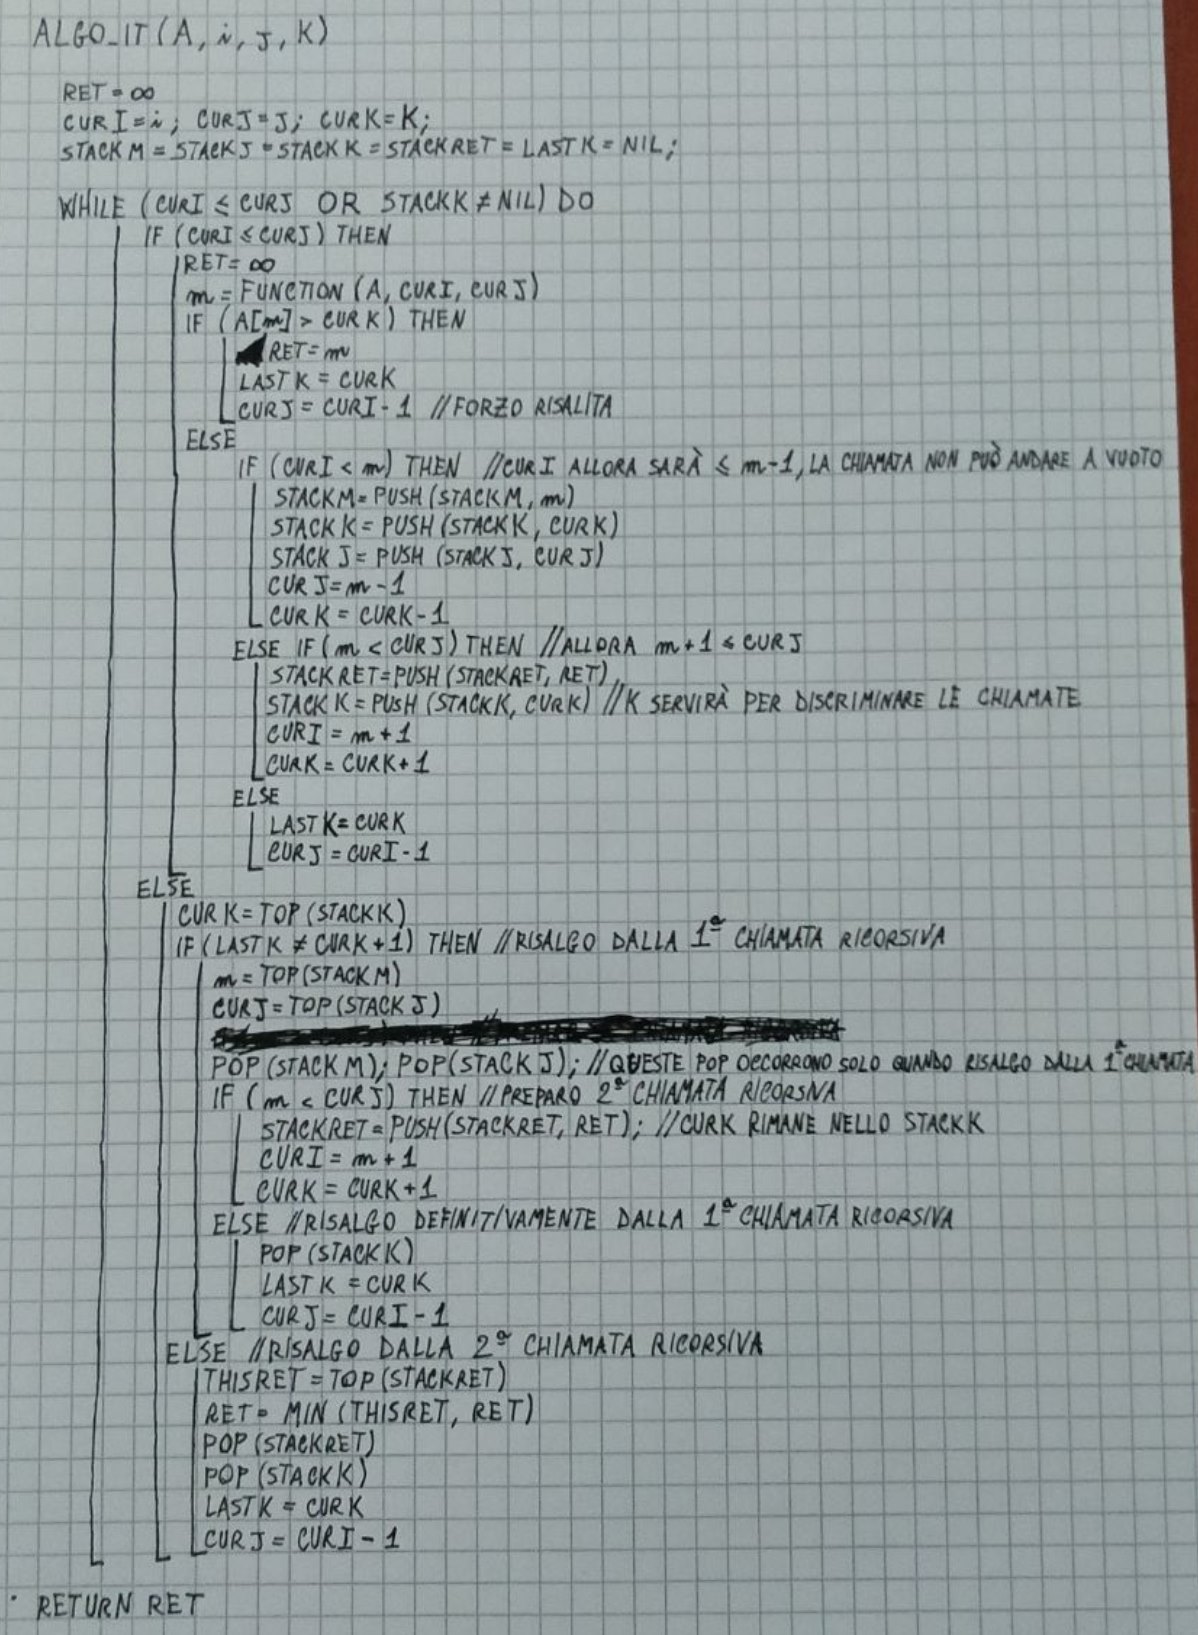 ALGO_IT (A, i, J, K)
RET = ∞
CUR I = i; CUR J = J; CUR K = K;
STACK M = STACK J = STACK K = STACKRET = LAST K = NIL;
WHILE (CURI ≤ CURJ OR STACKK ≠ NIL) DO
IF (CURI ≤ CURJ) THEN
RET = ∞
m = FUNCTION (A, CURI, CURJ)
IF (A[m] > CURK) THEN
RET = m
LAST K = CURK
CURJ = CURI - 1 // FORZO RISALITA
ELSE
IF (CURI < m) THEN // CURI ALLORA SARÀ ≤ m-1, LA CHIAMATA NON PUÒ ANDARE A VUOTO
STACKM = PUSH (STACKM, m)
STACK K = PUSH (STACKK, CURK)
STACK J = PUSH (STACKJ, CURJ)
CUR J = m - 1
CUR K = CURK - 1
ELSE IF (m < CURJ) THEN // ALLORA m + 1 ≤ CURJ
STACKRET = PUSH (STACKRET, RET)
STACK K = PUSH (STACKK, CURK) // K SERVIRÀ PER DISCRIMINARE LE CHIAMATE
CURI = m + 1
CURK = CURK + 1
ELSE
LAST K = CURK
CURJ = CURI - 1
ELSE
CUR K = TOP (STACKK)
IF (LASTK ≠ CURK + 1) THEN // RISALGO DALLA 1ª CHIAMATA RICORSIVA
m = TOP (STACK M)
CURJ = TOP (STACK J)
POP (STACK M); POP (STACK J); // QUESTE POP OCCORRONO SOLO QUANDO RISALGO DALLA 1ª CHIAMATA
IF (m < CURJ) THEN // PREPARO 2ª CHIAMATA RICORSIVA
STACKRET = PUSH (STACKRET, RET); // CURK RIMANE NELLO STACKK
CURI = m + 1
CURK = CURK + 1
ELSE // RISALGO DEFINITIVAMENTE DALLA 1ª CHIAMATA RICORSIVA
POP (STACKK)
LAST K = CURK
CURJ = CURI - 1
ELSE // RISALGO DALLA 2ª CHIAMATA RICORSIVA
THISRET = TOP (STACKRET)
RET = MIN (THISRET, RET)
POP (STACKRET)
POP (STACKK)
LASTK = CURK
CURJ = CURI - 1
RETURN RET